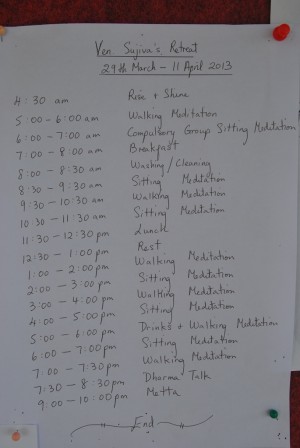 Ven Sujiva's Retreat
29th March – 11 April 2013
4:30 am Rise + Shine
5:00 – 6:00 am Walking Meditation
6:00 – 7:00 am Compulsory Group Sitting Meditation
7:00 – 8:00 am Breakfast
8:00 – 8:30 am Washing/Cleaning
8:30 – 9:30 am Sitting Meditation
9:30 – 10:30 am Walking Meditation
10:30 – 11:30 am Sitting Meditation
11:30 – 12:30 pm Lunch
12:30 – 1:00 pm Rest
1:00 – 2:00 pm Walking Meditation
2:00 – 3:00 pm Sitting Meditation
3:00 – 4:00 pm Walking Meditation
4:00 – 5:00 pm Sitting Meditation
5:00 – 6:00 pm Drinks + Walking Meditation
6:00 – 7:00 pm Sitting Meditation
7:00 – 7:30 pm Walking Meditation
7:30 – 8:30 pm Dharma Talk
9:00 – 10:00 pm Metta
End